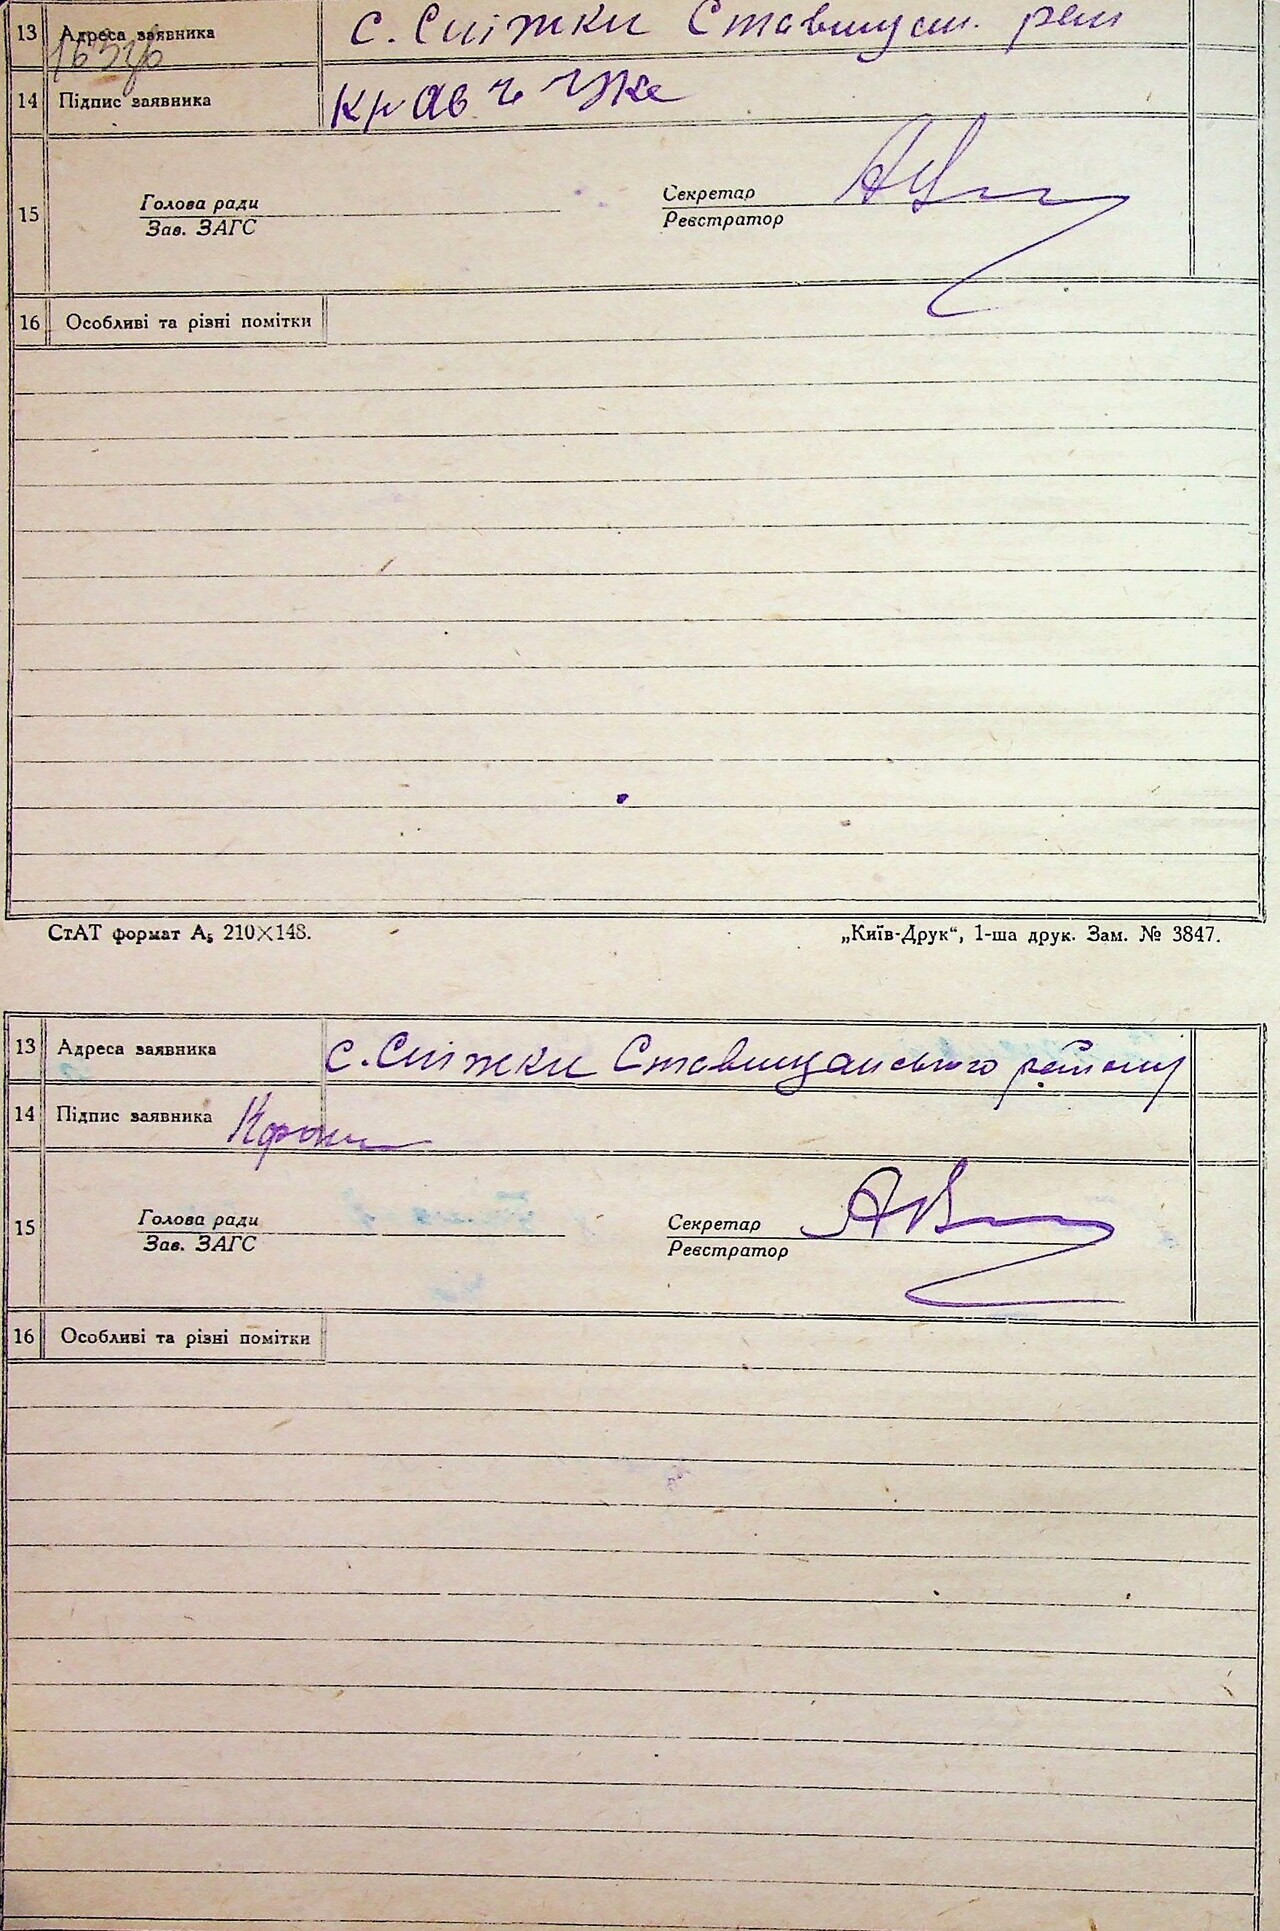 13 Адреса заявника с. Сніжки Ставищан. рай
14 Підпис заявника
15 Голова ради Секретар
Зав. ЗАГС Реєстратор
16 Особливі та різні помітки
СтАТ формат А₅ 210×148. „Київ-Друк“, 1-ша друк. Зам. № 3847.
13 Адреса заявника с. Сніжки Ставищанського району
14 Підпис заявника
15 Голова ради Секретар
Зав. ЗАГС Реєстратор
16 Особливі та різні помітки